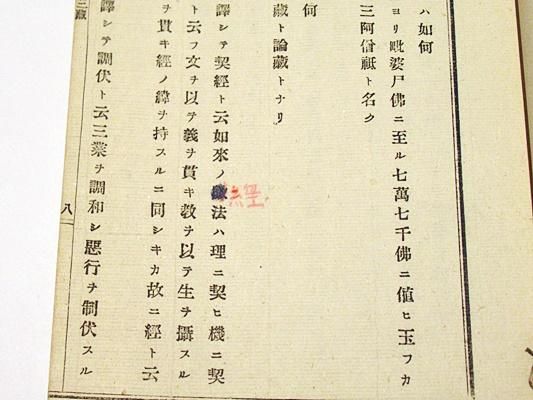 ハ如何
ヨリ毗婆尸佛ニ至ル七萬七千佛ニ値ヒ玉フカ
三阿僧祇ト名ク
何
藏ト論藏トナリ
譯シテ契經ト云如來ノ法ハ理ニ契ヒ機ニ契
經
ト云フ文チ以テ義チ貫キ敎チ以テ生チ攝スル
チ貫キ經ノ緯チ持スルニ同シキカ故ニ經ト云
譯シテ調伏ト云三業チ調和シ惡行チ制伏スル
三藏
八